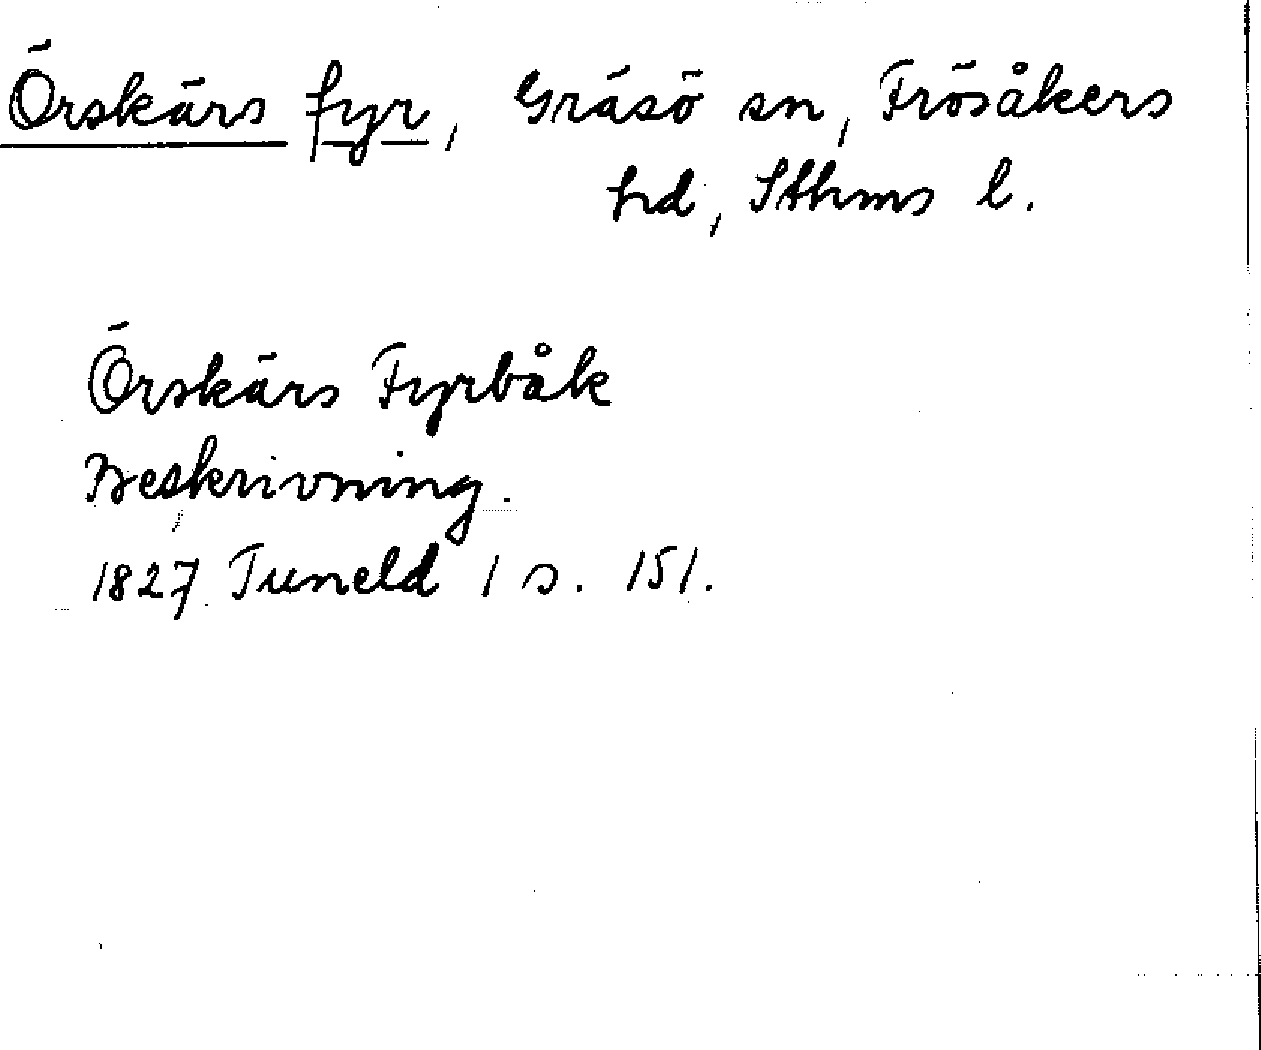 Örskärs fyr, Gräsö sn, Frösåkers
hd, Sthms l.
Örskärs Fyrbåk
Beskrivning.
1827 Tuneld 1 s. 151.